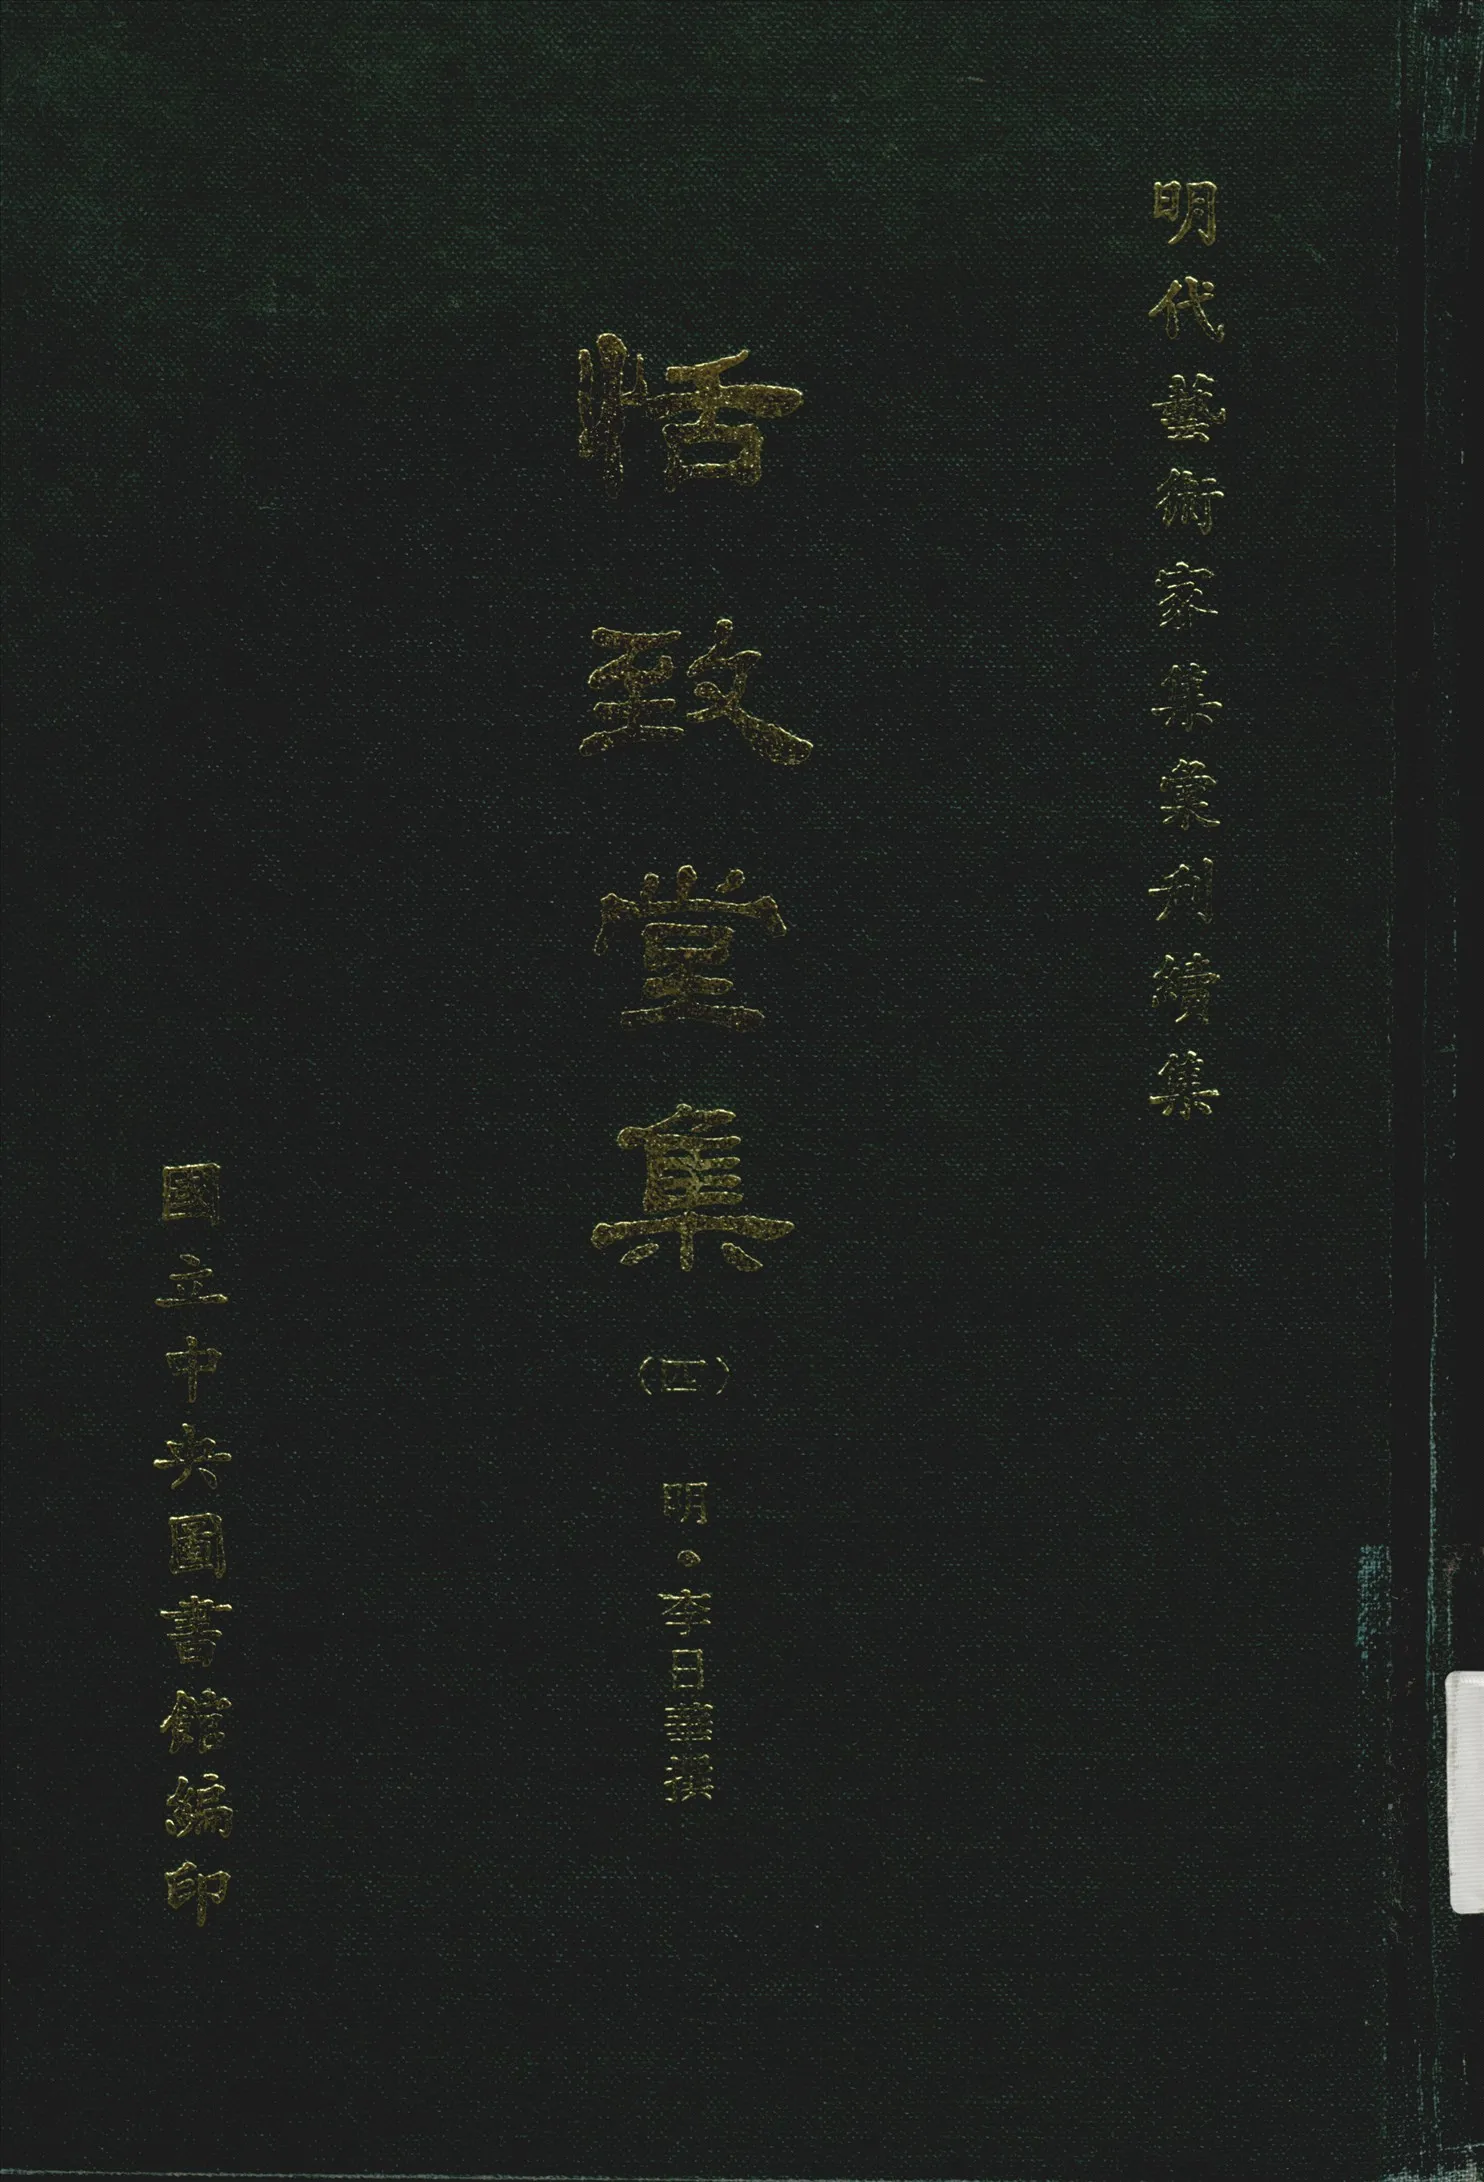 明代藝術家集彙刊續集
恬致堂集（四）　明・李日華撰
國立中央圖書館編印